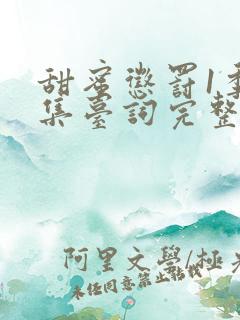 甜蜜懲罰1季
集臺詞完整
阿里文學/極光
未任同意禁止轉載